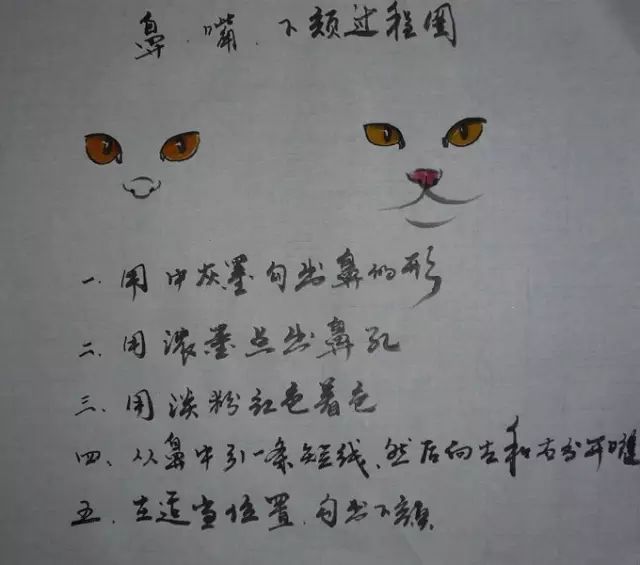 鼻.嘴.下颏过程图
一.用中灰墨勾出鼻的形
二.用浓墨点出鼻孔
三.用淡粉红色着色
四、从鼻中引一条短线、然后向左和右分开嘴
五.在适当位置.勾出下颏